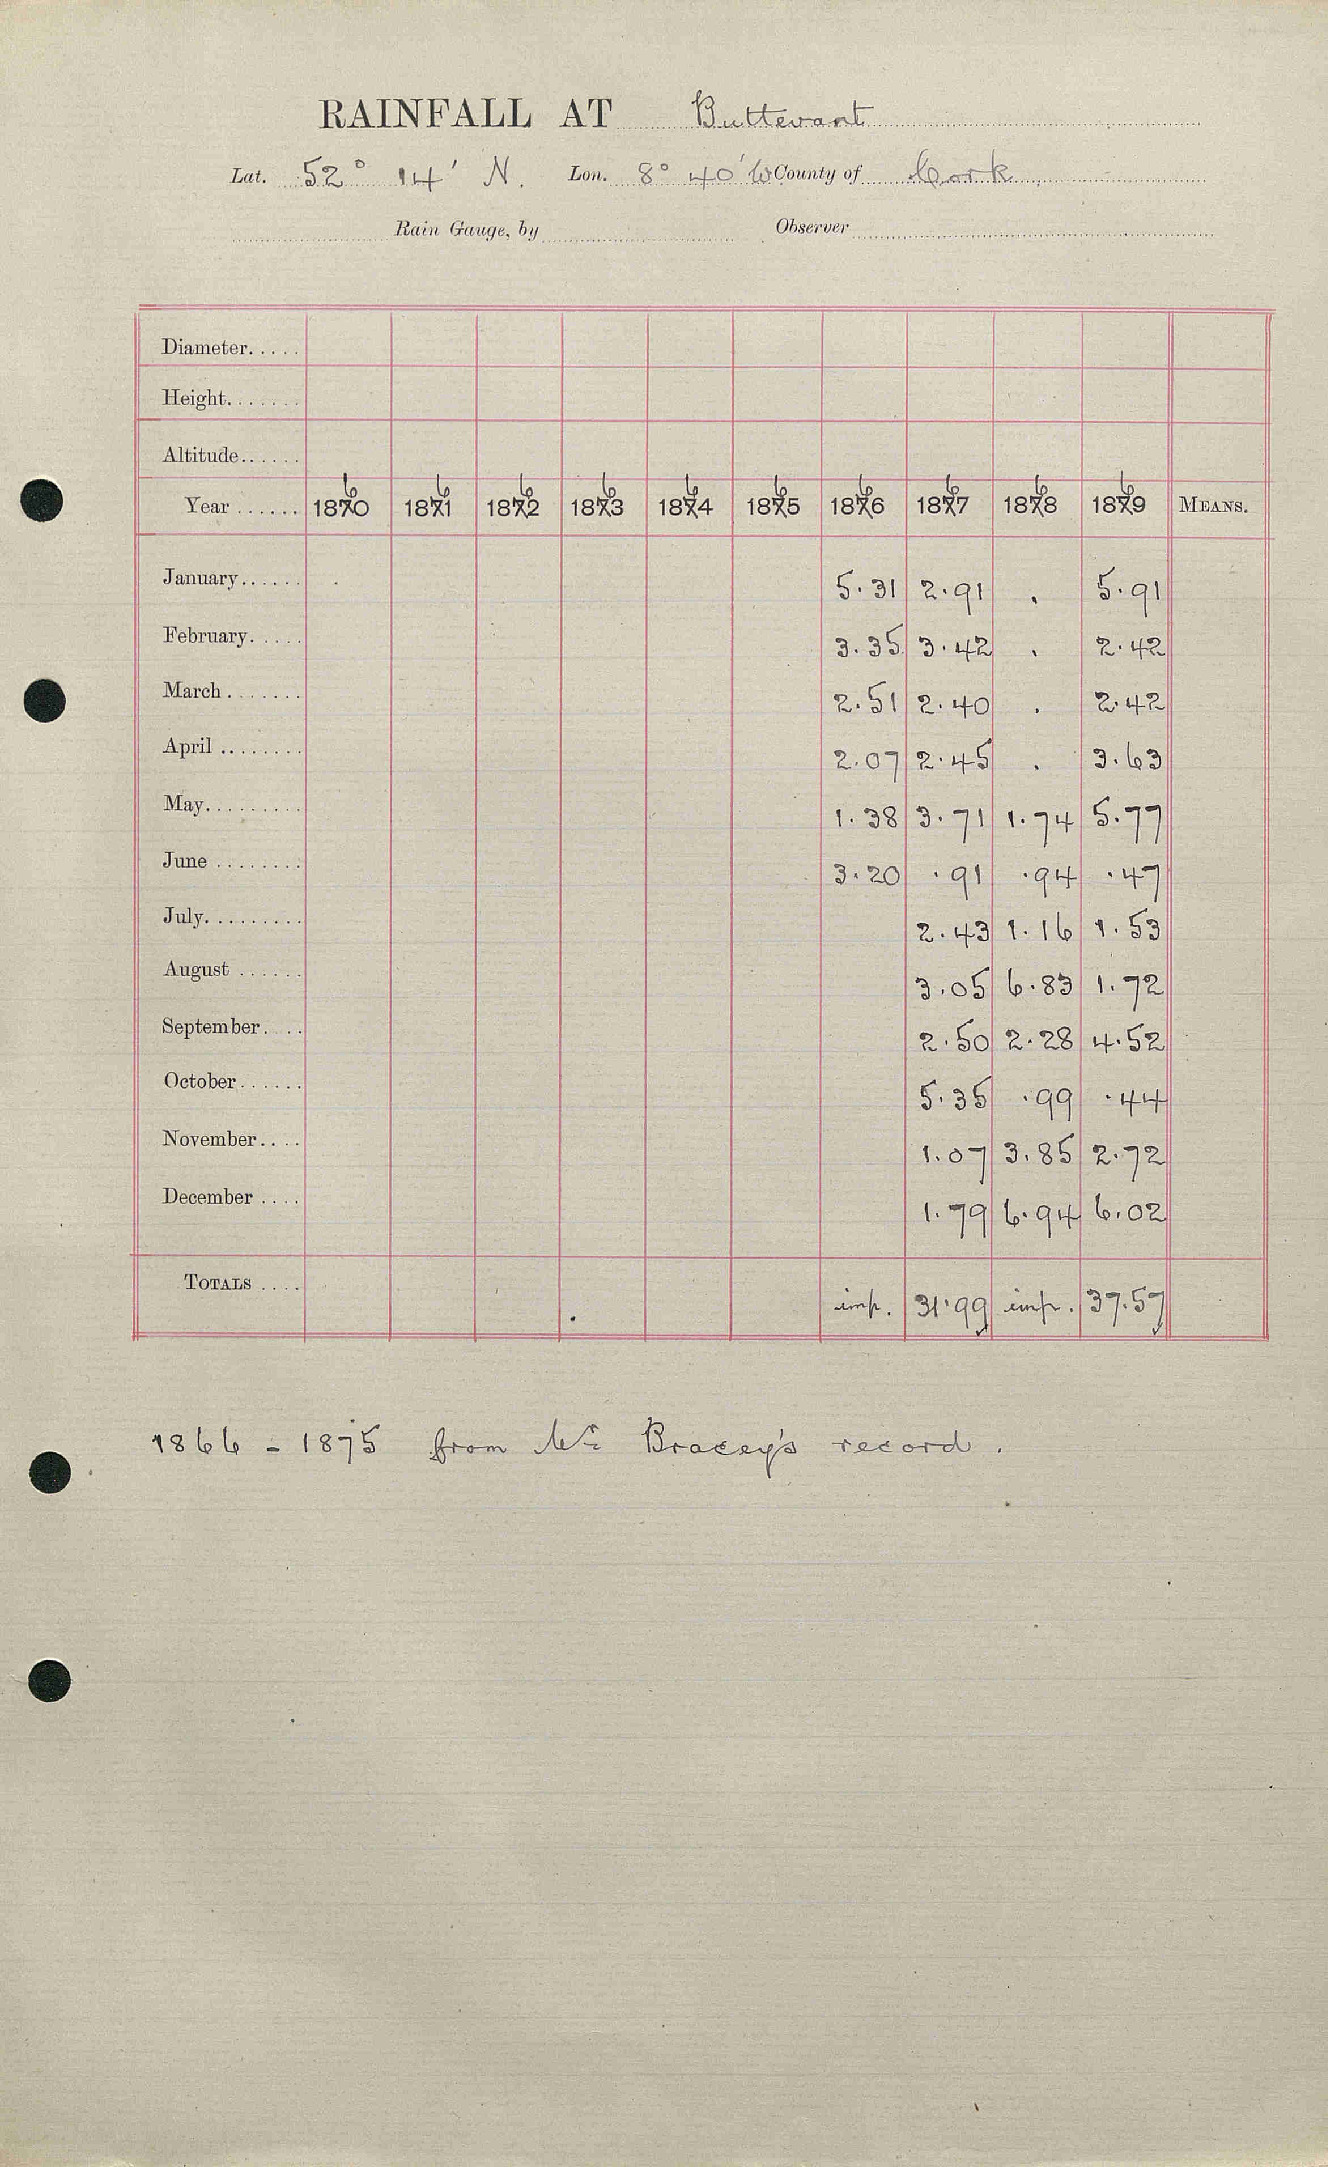 RAINFALL AT Buttevant
Lat. 52° 14' N. Lon. 8° 40' W County of Cork
Rain Gauge, by Observer
Diameter.....
Height.......
Altitude......
Year ...... 1860 1861 1862 1863 1864 1865 1866 1867 1868 1869 MEANS.
January...... 5.31 2.91 . 5.91
February..... 3.35 3.42 . 2.42
March....... 2.51 2.40 . 2.42
April ........ 2.07 2.45 . 3.63
May......... 1.38 3.71 1.74 5.77
June ........ 3.20 .91 .94 .47
July......... 2.43 1.16 1.53
August ...... 3.05 6.83 1.72
September.... 2.50 2.28 4.52
October...... 5.35 .99 .44
November.... 1.07 3.85 2.72
December .... 1.79 6.94 6.02
TOTALS .... imp. 31.99 imp. 37.57
1866 - 1875 from Mr Bracey's record.